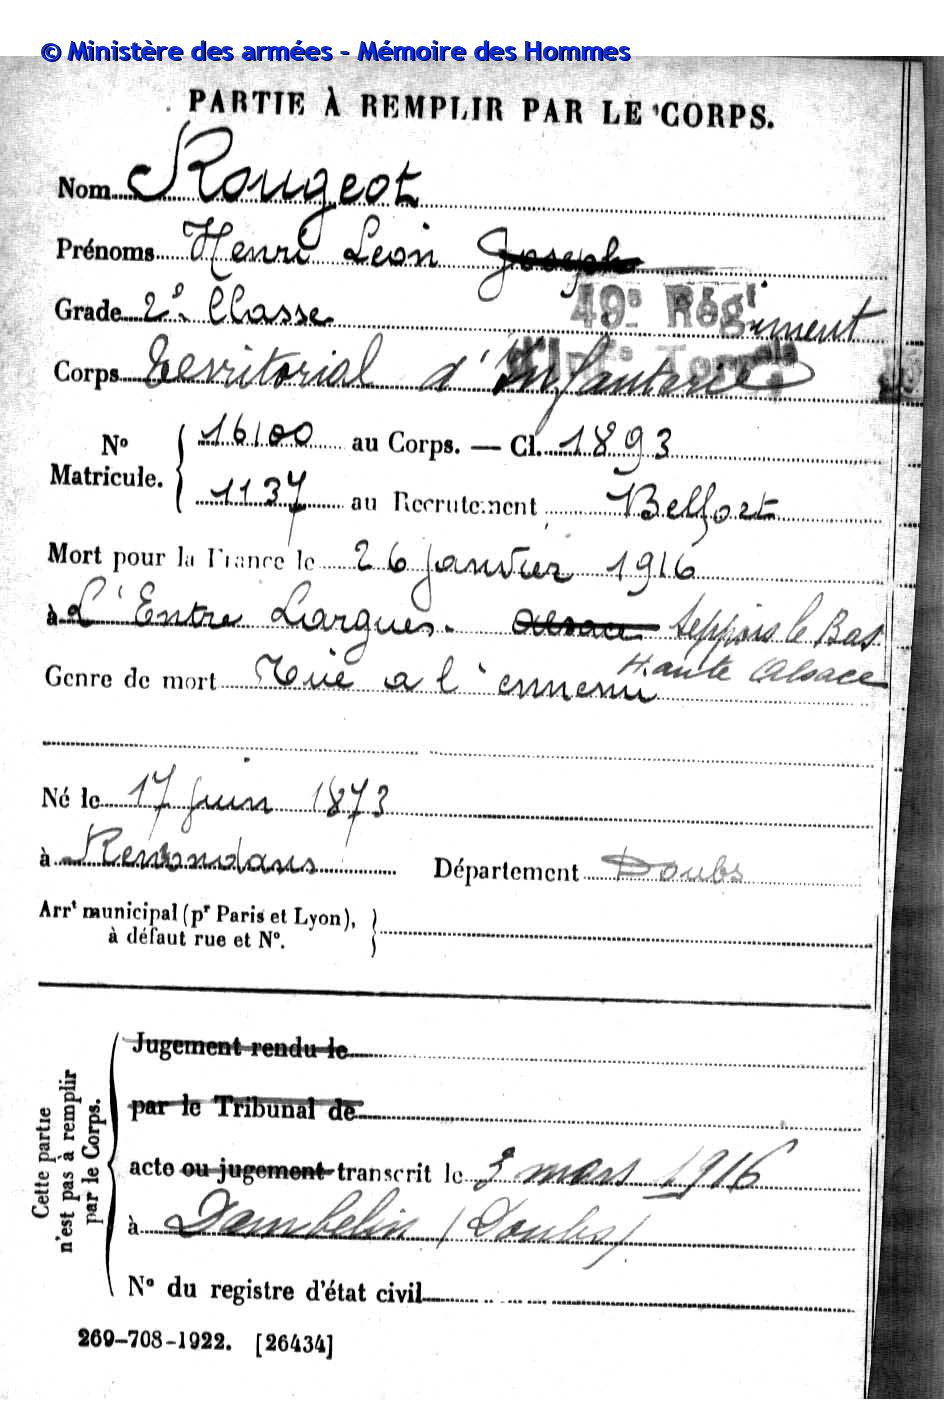 © Ministère des armées - Mémoire des Hommes
PARTIE À REMPLIR PAR LE CORPS.
Nom Rougeot
Prénoms Henri Léon Joseph
Grade 2e Classe
49e Régiment
Corps Territorial d'Infanterie
No Matricule. { 16100 au Corps. — Cl. 1893
1137 au Recrutement Belfort
Mort pour la France le 26 janvier 1916
à L'Entre Largues. Alsace Seppois le Bas
Haute Alsace
Genre de mort Tué a l'ennemi
Né le 17 juin 1873
à Remondans Département Doubs
Arrt municipal (pr Paris et Lyon),
à défaut rue et No.
Cette partie
n'est pas à remplir
par le Corps.
Jugement rendu le
par le Tribunal de
acte ou jugement transcrit le 3 mars 1916
à Dambelin (Doubs)
No du registre d'état civil
269-708-1922. [26434]